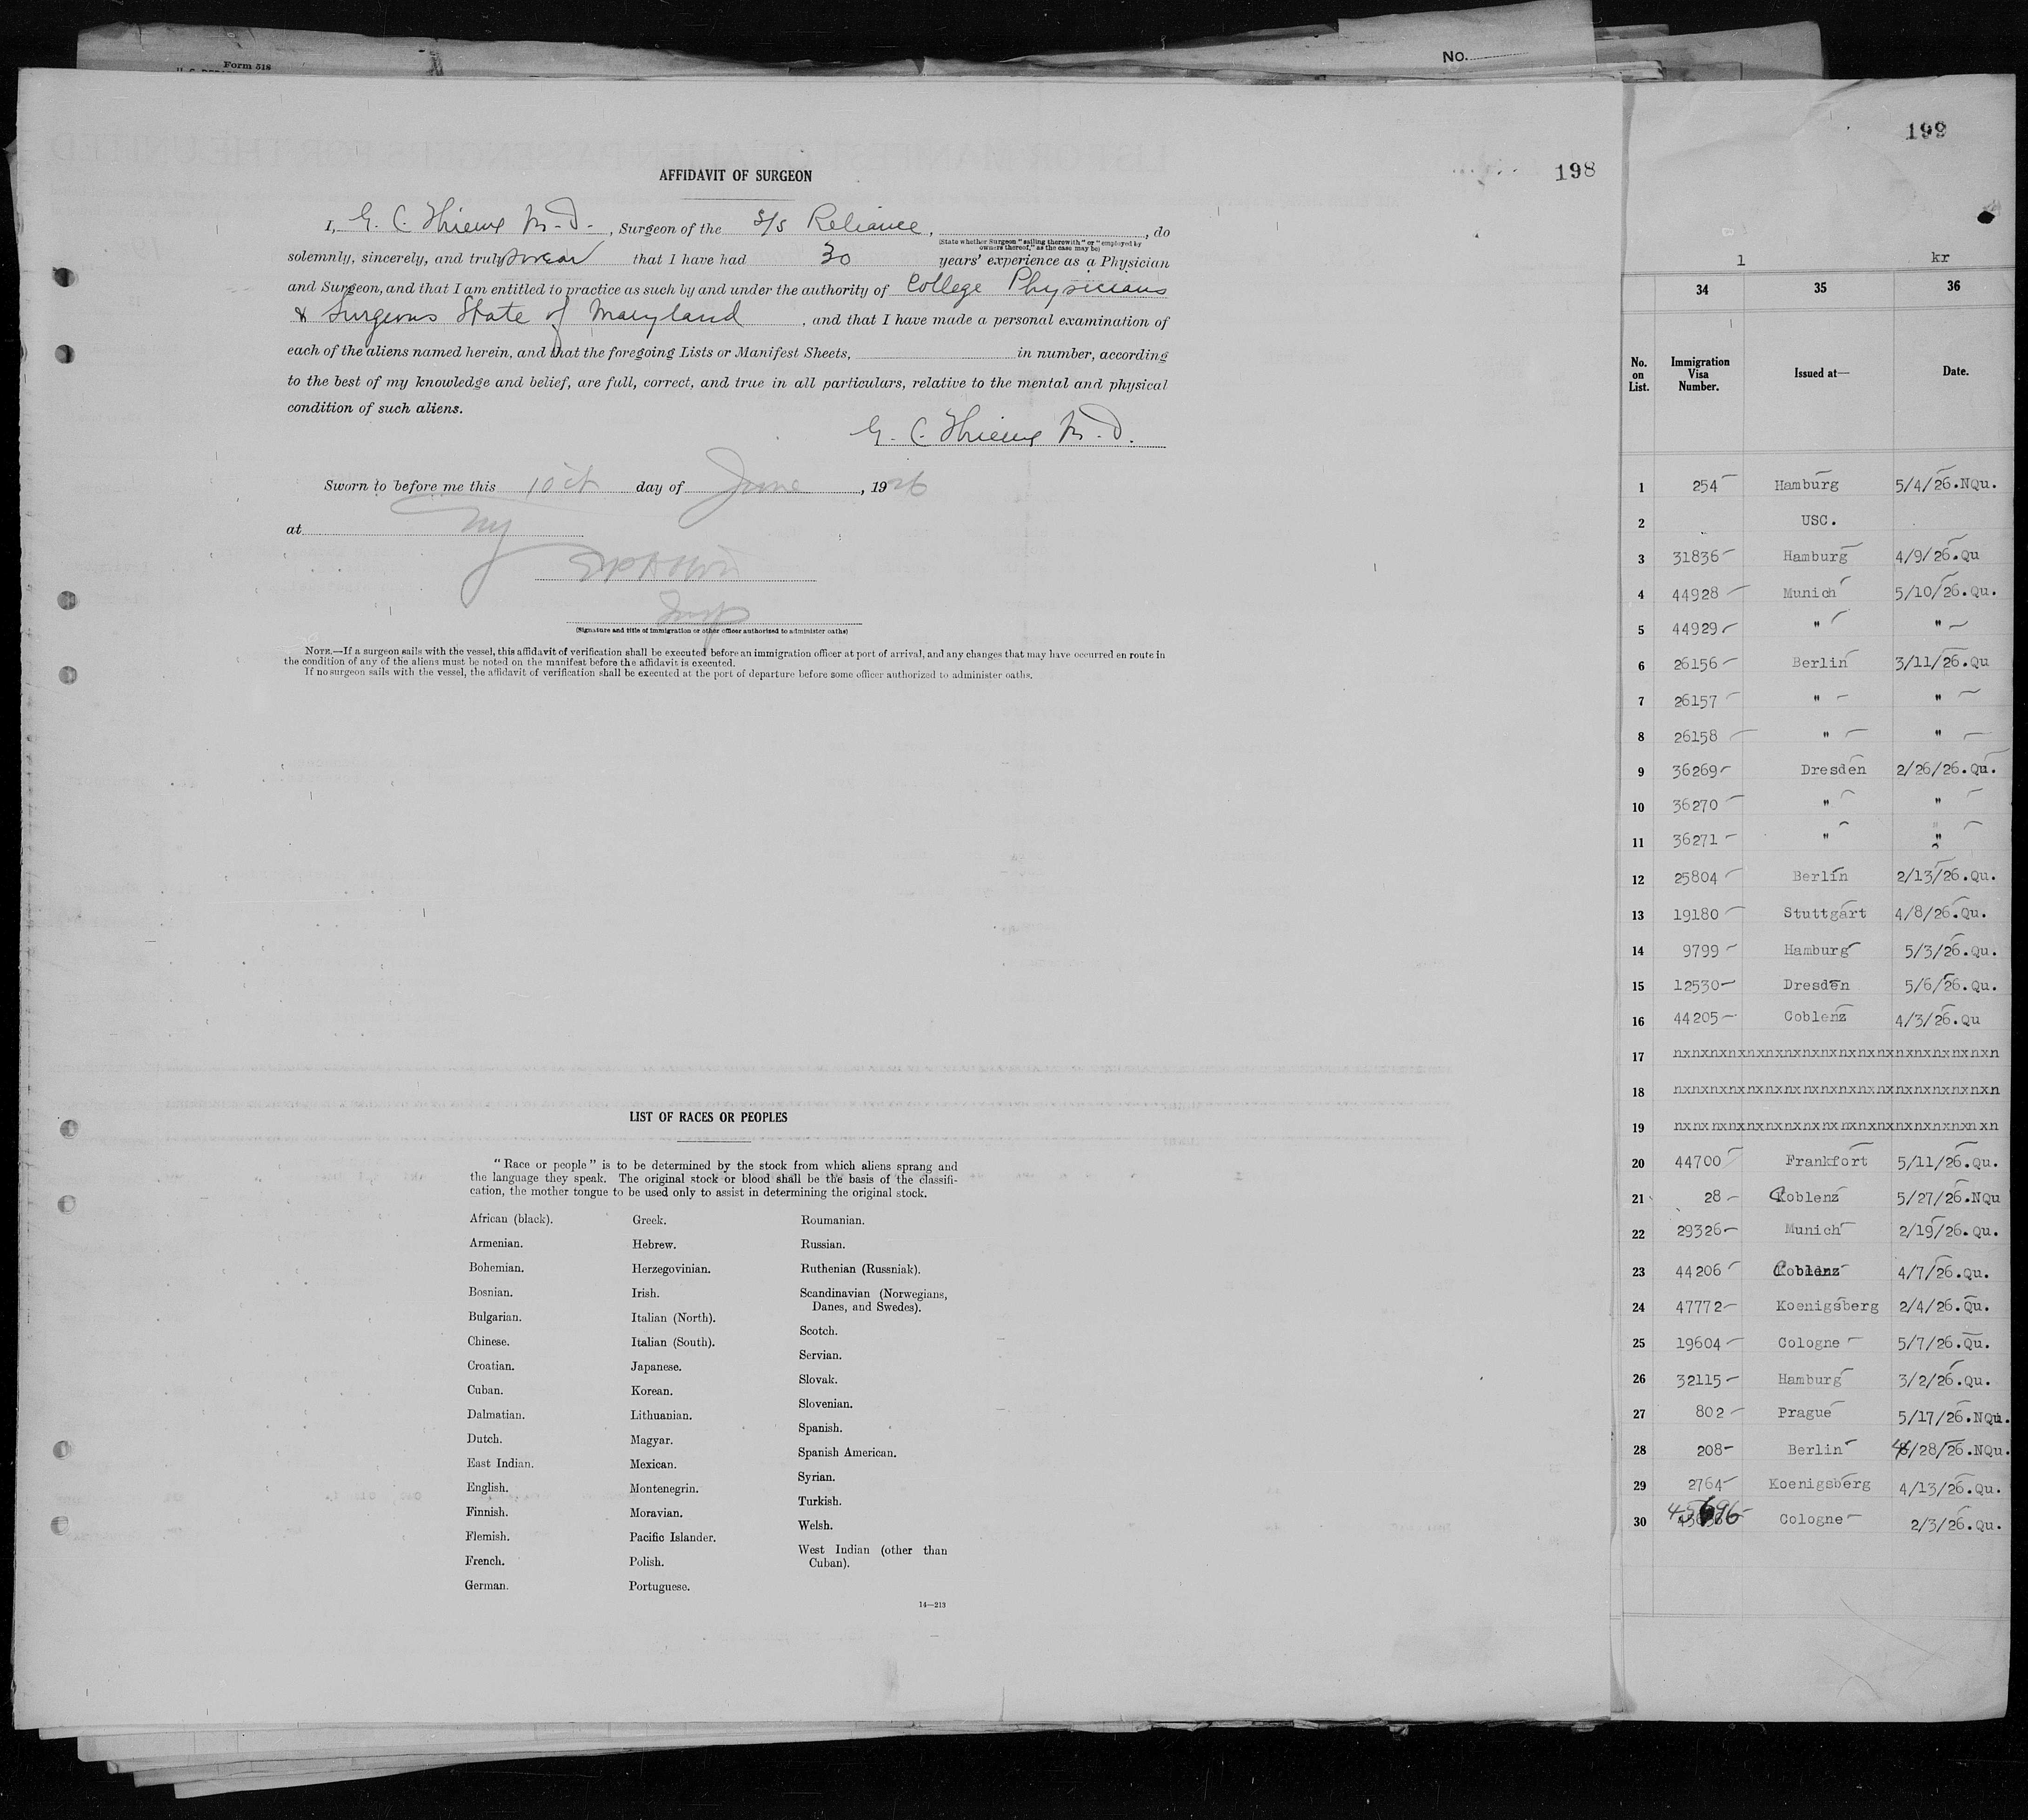 Form 518
No.
198
AFFIDAVIT OF SURGEON
I, G. C. M.D., Surgeon of the S/S Reliance, , do
(State whether Surgeon "sailing therewith" or "employed by owners thereof," as the case may be)
solemnly, sincerely, and truly swear that I have had 30 years' experience as a Physician
and Surgeon, and that I am entitled to practice as such by and under the authority of College Physicians
& Surgeons State of Maryland, and that I have made a personal examination of
each of the aliens named herein, and that the foregoing Lists or Manifest Sheets, in number, according
to the best of my knowledge and belief, are full, correct, and true in all particulars, relative to the mental and physical
condition of such aliens.
G. C. M.D.
Sworn to before me this 10th day of June, 1926
at NY
Insp
(Signature and title of immigration or other officer authorized to administer oaths)
NOTE.—If a surgeon sails with the vessel, this affidavit of verification shall be executed before an immigration officer at port of arrival, and any changes that may have occurred en route in
the condition of any of the aliens must be noted on the manifest before the affidavit is executed.
If no surgeon sails with the vessel, the affidavit of verification shall be executed at the port of departure before some officer authorized to administer oaths.
LIST OF RACES OR PEOPLES
"Race or people" is to be determined by the stock from which aliens sprang and
the language they speak. The original stock or blood shall be the basis of the classifi-
cation, the mother tongue to be used only to assist in determining the original stock.
African (black).
Armenian.
Bohemian.
Bosnian.
Bulgarian.
Chinese.
Croatian.
Cuban.
Dalmatian.
Dutch.
East Indian.
English.
Finnish.
Flemish.
French.
German.
Greek.
Hebrew.
Herzegovinian.
Irish.
Italian (North).
Italian (South).
Japanese.
Korean.
Lithuanian.
Magyar.
Mexican.
Montenegrin.
Moravian.
Pacific Islander.
Polish.
Portuguese.
Roumanian.
Russian.
Ruthenian (Russniak).
Scandinavian (Norwegians,
Danes, and Swedes).
Scotch.
Servian.
Slovak.
Slovenian.
Spanish.
Spanish American.
Syrian.
Turkish.
Welsh.
West Indian (other than
Cuban).
14—213
199
1 kr
34 35 36
No. on List. Immigration Visa Number. Issued at— Date.
1 254 Hamburg 5/4/26.NQu.
2 USC.
3 31836 Hamburg 4/9/26.Qu
4 44928 Munich 5/10/26.Qu.
5 44929 " "
6 26156 Berlin 3/11/26.Qu
7 26157 " "
8 26158 " "
9 36269 Dresden 2/26/26.Qu.
10 36270 " "
11 36271 " "
12 25804 Berlin 2/13/26.Qu.
13 19180 Stuttgart 4/8/26.Qu.
14 9799 Hamburg 5/3/26.Qu.
15 12530 Dresden 5/6/26.Qu.
16 44205 Coblenz 4/3/26.Qu
17 nxnxnxnxnxnxnxnxnxnxnxnxnxnxnxnxnxnxn
18 nxnxnxnxnxnxnxnxnxnxnxnxnxnxnxnxnxnxn
19 nxnxnxnxnxnxnxnxnxnxnxnxnxnxnxnxnxnxn
20 44700 Frankfort 5/11/26.Qu.
21 28 Coblenz 5/27/26.NQu
22 29326 Munich 2/19/26.Qu.
23 44206 Coblenz 4/7/26.Qu.
24 47772 Koenigsberg 2/4/26.Qu.
25 19604 Cologne 5/7/26.Qu.
26 32115 Hamburg 3/2/26.Qu.
27 802 Prague 5/17/26.NQu.
28 208 Berlin 4/28/26.NQu.
29 2764 Koenigsberg 4/13/26.Qu.
30 45696 Cologne 2/3/26.Qu.